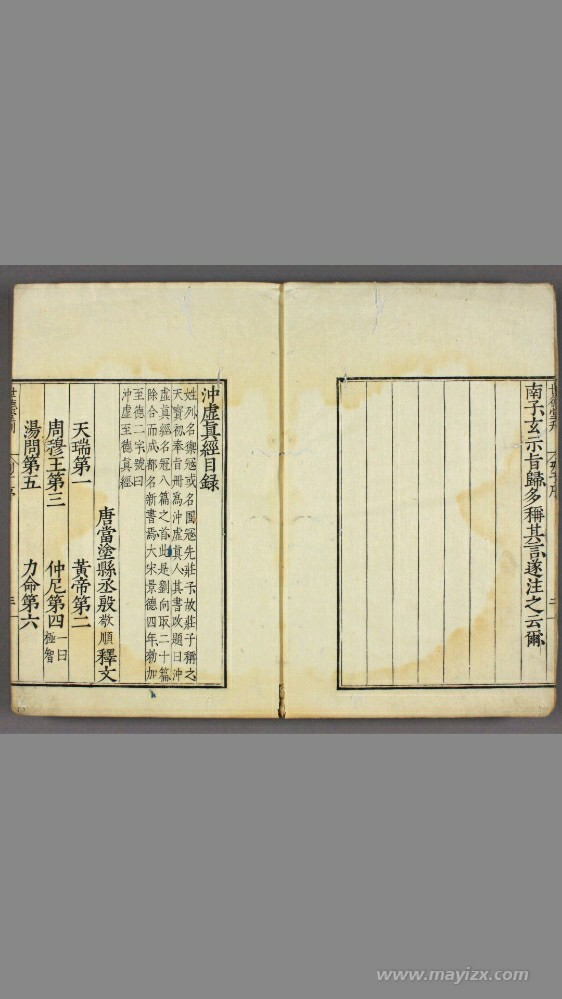 南子玄示旨歸多稱其言遂注之云爾
沖虛眞經目錄
姓列名禦寇或名圄寇先莊子故莊子稱之
天寶初奉旨冊爲沖虛眞人其書改題曰沖
虛眞經名冠八篇之首此是劉向取二十篇
除合而成都名新書焉大宋景德四年勑加
至德二字號曰
沖虛至德眞經
唐當塗縣丞殷敬順釋文
天瑞第一 黃帝第二
周穆王第三 仲尼第四一曰極智
湯問第五 力命第六
www.mayizx.com